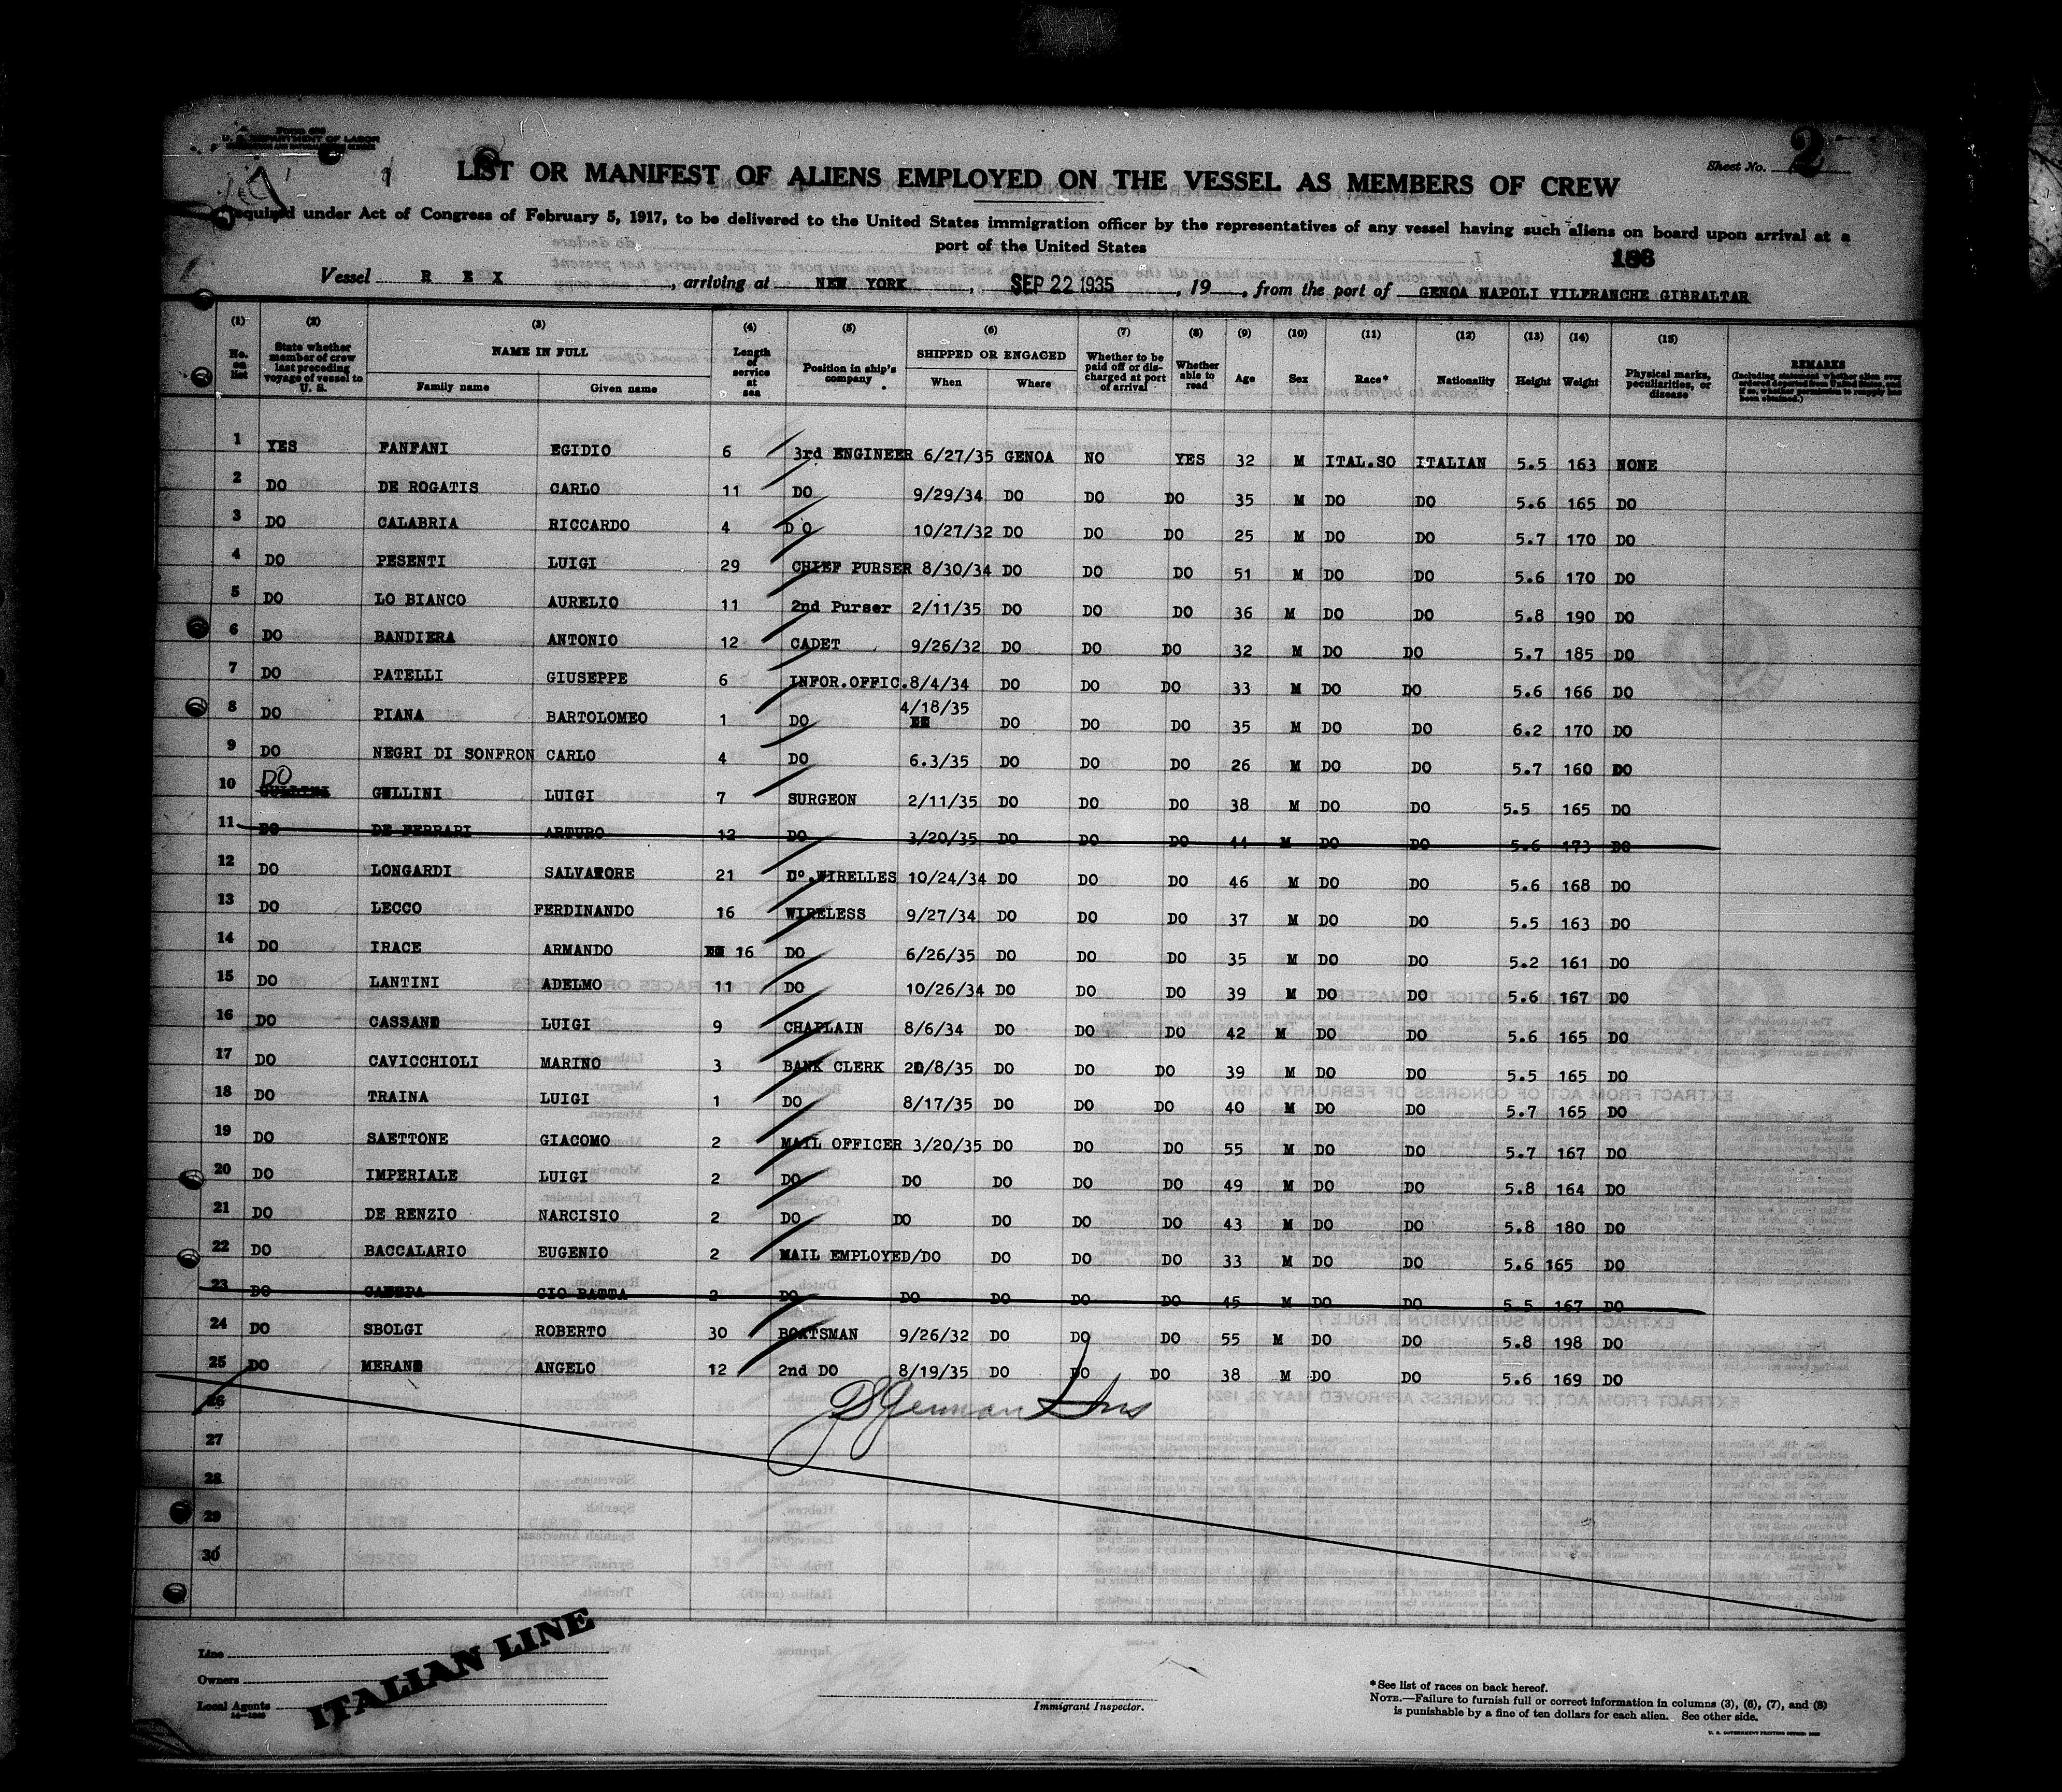 Form 680
U. S. DEPARTMENT OF LABOR
Sheet No. 2
LIST OR MANIFEST OF ALIENS EMPLOYED ON THE VESSEL AS MEMBERS OF CREW
Required under Act of Congress of February 5, 1917, to be delivered to the United States immigration officer by the representatives of any vessel having such aliens on board upon arrival at a
port of the United States
Vessel R E X, arriving at NEW YORK, SEP 22 1935, 19, from the port of GENOA NAPOLI VILFRANCHE GIBRALTAR
(1) (2) (3) (4) (5) (6) (7) (8) (9) (10) (11) (12) (13) (14) (15)
No. on list State whether member of crew last preceding voyage of vessel to U. S. NAME IN FULL Family name Given name Length of service at sea Position in ship's company SHIPPED OR ENGAGED When Where Whether to be paid off or discharged at port of arrival Whether able to read Age Sex Race* Nationality Height Weight Physical marks, peculiarities, or disease REMARKS (Including statement whether alien ever ordered deported from United States, and if so, whether permission to reapply has been obtained.)
1 YES FANFANI EGIDIO 6 3rd ENGINEER 6/27/35 GENOA NO YES 32 M ITAL.SO ITALIAN 5.5 163 NONE
2 DO DE ROGATIS CARLO 11 DO 9/29/34 DO DO DO 35 M DO DO 5.6 165 DO
3 DO CALABRIA RICCARDO 4 D O 10/27/32 DO DO DO 25 M DO DO 5.7 170 DO
4 DO PESENTI LUIGI 29 CHIEF PURSER 8/30/34 DO DO DO 51 M DO DO 5.6 170 DO
5 DO LO BIANCO AURELIO 11 2nd Purser 2/11/35 DO DO DO 36 M DO DO 5.8 190 DO
6 DO BANDIERA ANTONIO 12 CADET 9/26/32 DO DO DO 32 M DO DO 5.7 185 DO
7 DO PATELLI GIUSEPPE 6 INFOR.OFFIC. 8/4/34 DO DO DO 33 M DO DO 5.6 166 DO
8 DO PIANA BARTOLOMEO 1 DO 4/18/35 DO DO DO 35 M DO DO 6.2 170 DO
9 DO NEGRI DI SONFRON CARLO 4 DO 6.3/35 DO DO DO 26 M DO DO 5.7 160 DO
10 DO GULLINI LUIGI 7 SURGEON 2/11/35 DO DO DO 38 M DO DO 5.5 165 DO
11 DO DE FERRARI ARTURO 12 DO 3/20/35 DO DO DO 44 M DO DO 5.6 173 DO
12 DO LONGARDI SALVATORE 21 Do.WIRELLES 10/24/34 DO DO DO 46 M DO DO 5.6 168 DO
13 DO LECCO FERDINANDO 16 WIRELESS 9/27/34 DO DO DO 37 M DO DO 5.5 163 DO
14 DO IRACE ARMANDO 16 DO 6/26/35 DO DO DO 35 M DO DO 5.2 161 DO
15 DO LANTINI ADELMO 11 DO 10/26/34 DO DO DO 39 M DO DO 5.6 167 DO
16 DO CASSANO LUIGI 9 CHAPLAIN 8/6/34 DO DO DO 42 M DO DO 5.6 165 DO
17 DO CAVICCHIOLI MARINO 3 BANK CLERK 20/8/35 DO DO DO 39 M DO DO 5.5 165 DO
18 DO TRAINA LUIGI 1 DO 8/17/35 DO DO DO 40 M DO DO 5.7 165 DO
19 DO SAETTONE GIACOMO 2 MAIL OFFICER 3/20/35 DO DO DO 55 M DO DO 5.7 167 DO
20 DO IMPERIALE LUIGI 2 DO DO DO DO DO 49 M DO DO 5.8 164 DO
21 DO DE RENZIO NARCISIO 2 DO DO DO DO DO 43 M DO DO 5.8 180 DO
22 DO BACCALARIO EUGENIO 2 MAIL EMPLOYED/DO DO DO DO 33 M DO DO 5.6 165 DO
23 DO CANEPA GIO BATTA 2 DO DO DO DO DO 45 M DO DO 5.5 167 DO
24 DO SBOLGI ROBERTO 30 BOATSMAN 9/26/32 DO DO DO 55 M DO DO 5.8 198 DO
25 DO MERANO ANGELO 12 2nd DO 8/19/35 DO DO DO 38 M DO DO 5.6 169 DO
26
27
28
29
30
Line
Owners
Local Agents
ITALIAN LINE
Immigrant Inspector.
*See list of races on back hereof.
NOTE.—Failure to furnish full or correct information in columns (3), (6), (7), and (8)
is punishable by a fine of ten dollars for each alien. See other side.